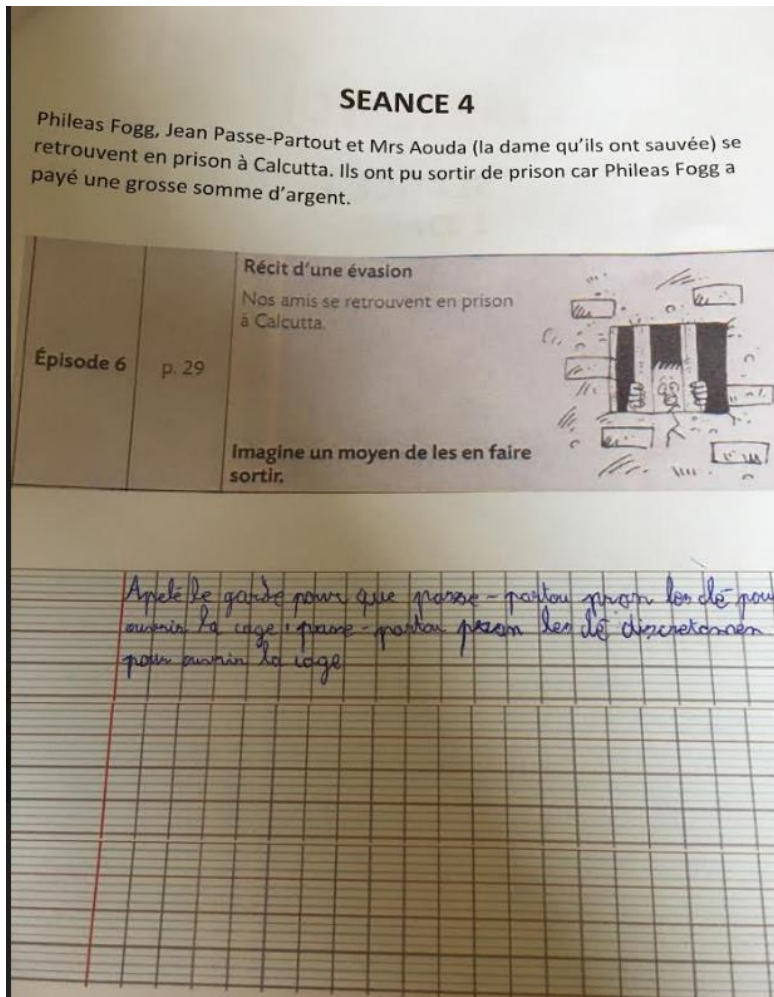 SEANCE 4
Phileas Fogg, Jean Passe-Partout et Mrs Aouda (la dame qu'ils ont sauvée) se
retrouvent en prison à Calcutta. Ils ont pu sortir de prison car Phileas Fogg a
payé une grosse somme d'argent.
Épisode 6
p. 29
Récit d'une évasion
Nos amis se retrouvent en prison
à Calcutta.
Imagine un moyen de les en faire
sortir.
Apelé le garde pour que passe-partou pran les clé pour
ouvrir la cage. passe-partou pran les clé discretemen
pour ouvrir la cage